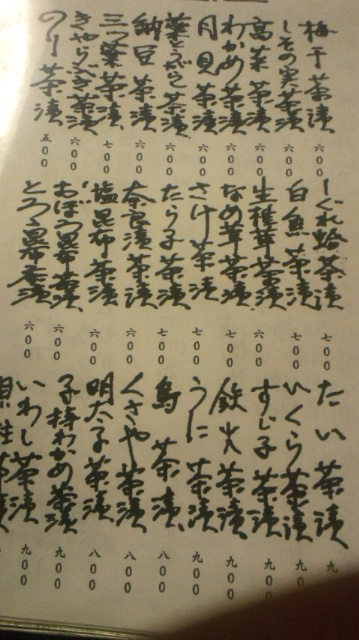 梅干茶漬 六〇〇
しその実茶漬 六〇〇
高菜茶漬 六〇〇
わかめ茶漬 六〇〇
月見茶漬 六〇〇
葉とうがらし茶漬 六〇〇
納豆茶漬 六〇〇
三つ葉茶漬 七〇〇
きゃらぶき茶漬 六〇〇
のり茶漬 五〇〇
しぐれ蛤茶漬 七〇〇
白魚茶漬 七〇〇
生椎茸茶漬 六〇〇
なめ茸茶漬 七〇〇
さけ茶漬 七〇〇
たら子茶漬 七〇〇
奈良漬茶漬 六〇〇
塩昆布茶漬 六〇〇
おぼろ昆布茶漬 六〇〇
とろろ昆布茶漬 六〇〇
たい茶漬 九
いくら茶漬 九〇〇
すじ子茶漬 九〇〇
鉄火茶漬 九〇〇
うに茶漬 九〇〇
鳥茶漬 八〇〇
くさや茶漬 八〇〇
明太子茶漬 八〇〇
子持わかめ茶漬 九〇〇
いわし茶漬 九〇〇